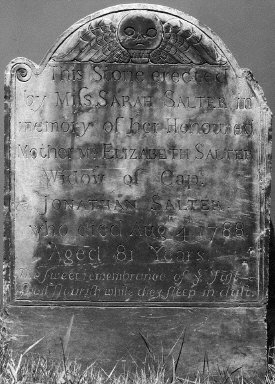 This Stone erected
by Miss SARAH SALTER in
memory of her Honoured
Mother Mrs ELIZABETH SALTER
Widow of Capt.
JONATHAN SALTER
who died Aug 4 1788
Aged 81 Years
The sweet remembrance of ye Just
Shall flourish while they sleep in dust